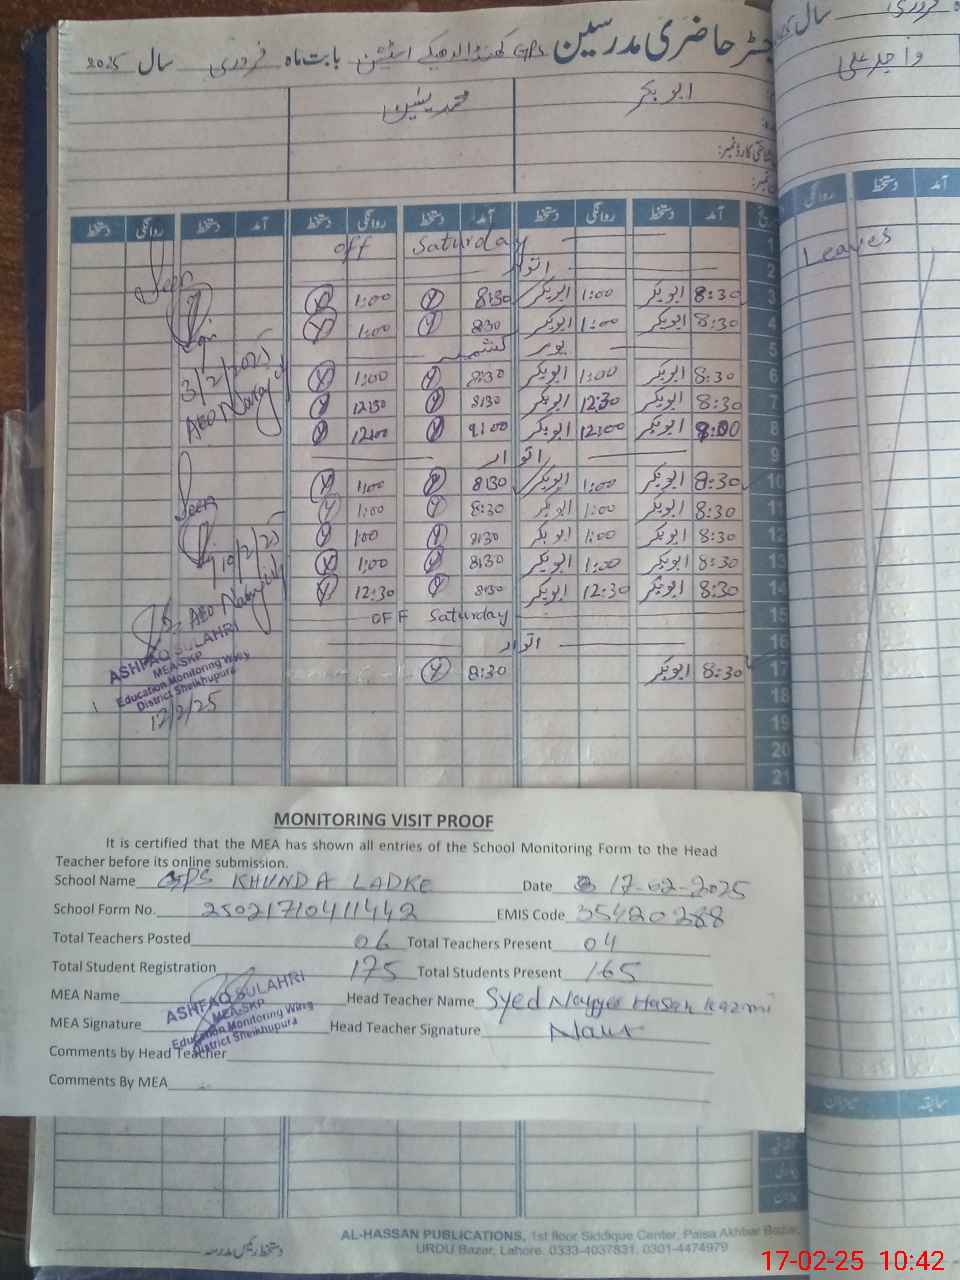 رجسٹر حاضری مدرسین GPS کھنڈا لدھیکے اسٹیشن بابت ماہ فروری سال 2025
ابوبکر محمد یٰسین
شناختی کارڈ نمبر:
آمد دستخط روانگی دستخط آمد دستخط روانگی دستخط آمد دستخط روانگی دستخط
1 Saturday off
2 اتوار
3 8:30 ابوبکر 1:00 ابوبکر 8:30 1:00
4 8:30 ابوبکر 1:00 ابوبکر 8:30 1:00
5 یوم کشمیر
6 8:30 ابوبکر 1:00 ابوبکر 8:30 1:00
7 8:30 ابوبکر 12:30 ابوبکر 8:30 12:30
8 9:00 ابوبکر 12:00 ابوبکر 9:00 12:00
9 اتوار
10 8:30 ابوبکر 1:00 ابوبکر 8:30 1:00
11 8:30 ابوبکر 1:00 ابوبکر 8:30 1:00
12 8:30 ابوبکر 1:00 ابوبکر 8:30 1:00
13 8:30 ابوبکر 1:00 ابوبکر 8:30 1:00
14 8:30 ابوبکر 12:30 ابوبکر 8:30 12:30
15 OFF Saturday
16 اتوار
17 8:30 ابوبکر 8:30
18
19
20
21
Seen
3/2/2025
AEO
Seen
10/2/25
AEO
ASHFAQ SULAHRI
MEA-SKP
Education Monitoring Wing
District Sheikhupura
12/2/25
سال فروری
واجد علی
آمد دستخط روانگی
Leaves
MONITORING VISIT PROOF
It is certified that the MEA has shown all entries of the School Monitoring Form to the Head
Teacher before its online submission.
School Name GPS KHUNDA LADKE Date 17-02-2025
School Form No. 25021710411442 EMIS Code 35420288
Total Teachers Posted 06 Total Teachers Present 04
Total Student Registration 175 Total Students Present 165
MEA Name Head Teacher Name Syed Nayyer Hasan Kazmi
MEA Signature Head Teacher Signature
ASHFAQ SULAHRI
MEA-SKP
Education Monitoring Wing
District Sheikhupura
Comments by Head Teacher
Comments By MEA
سابقہ میزان
دستخط رئیس مدرسہ
AL-HASSAN PUBLICATIONS, 1st floor Siddique Center, Paisa Akhbar Bazar,
URDU Bazar, Lahore. 0333-4037831, 0301-4474979
17-02-25 10:42